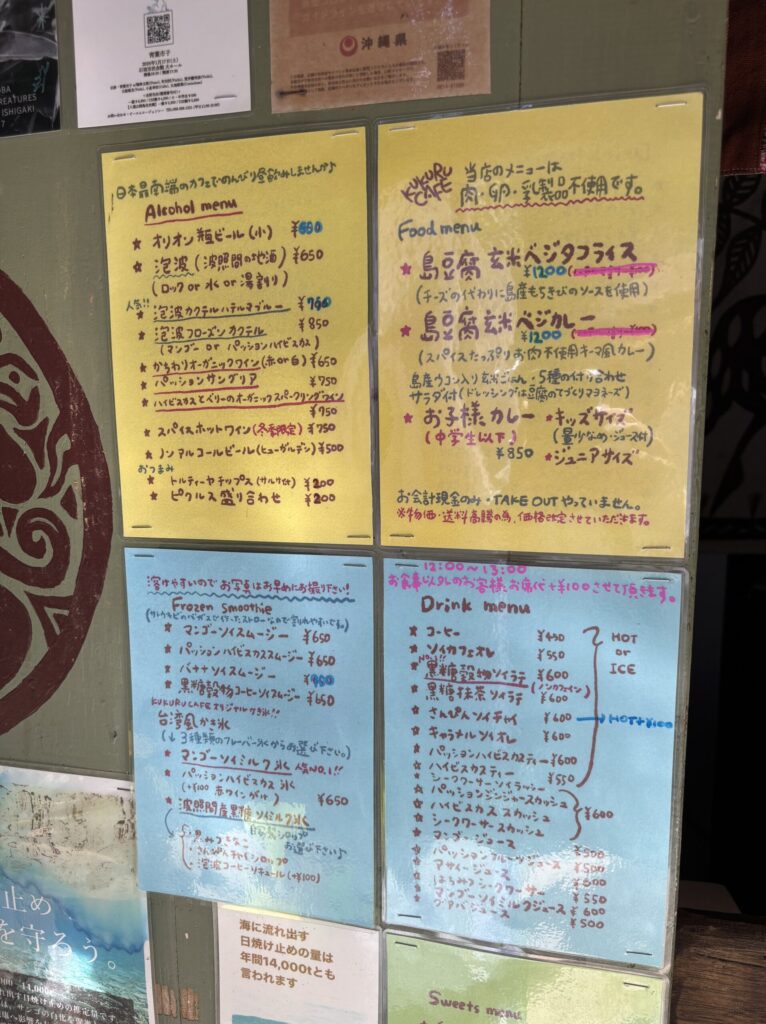 OBA
REATURES
ISHIGAKI
沖縄県
日本最南端のカフェでのんびり昼飲みしませんか♪
Alcohol menu
★ オリオン 瓶ビール(小)
★ 泡波(波照間の地酒) ¥650
(ロック or 水 or 湯割り)
人気!!
★ 泡波カクテルハテルマブルー
★ 泡波フローズンカクテル ¥850
(マンゴー or パッションハイビスカス)
★ かちわりオーガニックワイン(赤 or 白) ¥650
★ パッションサングリア ¥750
★ ハイビスカスとベリーのオーガニックスパークリングワイン
¥950
★ スパイスホットワイン(冬季限定) ¥750
★ ノンアルコールビール(ヒューガルデン) ¥500
おつまみ
★ トルティーヤチップス(サルサ付) ¥200
★ ピクルス盛り合わせ ¥200
KUKURU CAFE
当店のメニューは
肉・卵・乳製品不使用です。
Food menu
★ 島豆腐 玄米ベジタコライス
¥1200
(チーズの代わりに島産もちきびのソースを使用)
★ 島豆腐玄米ベジカレー
¥1200
(スパイスたっぷりお肉不使用キーマ風カレー)
島産ウコン入り玄米ごはん・5種の付け合わせ
サラダ付(ドレッシングは豆腐のてづくりマヨネーズ)
★ お子様カレー ★キッズサイズ
(中学生以下) (量少なめ・ジュース付)
¥850 ★ジュニアサイズ
お会計現金のみ・TAKE OUT やっていません。
※物価・送料高騰の為、価格改定させていただきます。
溶けやすいのでお写真はお早めにお撮り下さい!
Frozen smoothie
(サトウキビのバガスで作ったストローなので割れやすいです。)
★ マンゴーソイスムージー ¥650
★ パッションハイビスカススムージー ¥650
★ バナナソイスムージー
★ 黒糖穀物コーヒーソイスムージー ¥650
KUKURU CAFE オリジナルかき氷!!
台湾風かき氷
(↓3種類のフレーバー氷からお選び下さい。)
★ マンゴーソイミルク氷 人気NO.1!!
★ パッションハイビスカス氷
(+¥100 赤ワインがけ) ¥650
★ 波照間産黒糖ソイミルク氷
自家製シロップ
お選び下さい♪
・黒みつきなこ
・さんぴんチャイシロップ
・泡波コーヒーリキュール(+¥100)
12:00〜13:00
お食事以外のお客様、お席代+¥100させて頂きます。
Drink menu
★ コーヒー
★ ソイカフェオレ ¥550
NO.1!!
★ 黒糖穀物ソイラテ ¥600
(ノンカフェイン)
★ 黒糖抹茶ソイラテ ¥600
★ さんぴんソイチャイ ¥600
→HOT+¥100
★ キャラメルソイオレ ¥600
★ パッションハイビスカスティー ¥600
★ ハイビスカスティー ¥550
HOT
or
ICE
★ シークワーサーソイラッシー
★ パッションジンジャースカッシュ
★ ハイビスカススカッシュ
★ シークワーサースカッシュ
¥600
★ マンゴージュース ¥500
★ パッションフルーツジュース ¥500
★ アサイージュース ¥600
★ はちみつシークワーサー ¥550
★ マンゴーソイミルクジュース ¥600
★ グァバジュース ¥500
止め
を守ろう。
海に流れ出す
日焼け止めの量は
年間14,000tとも
言われます
Sweets menu